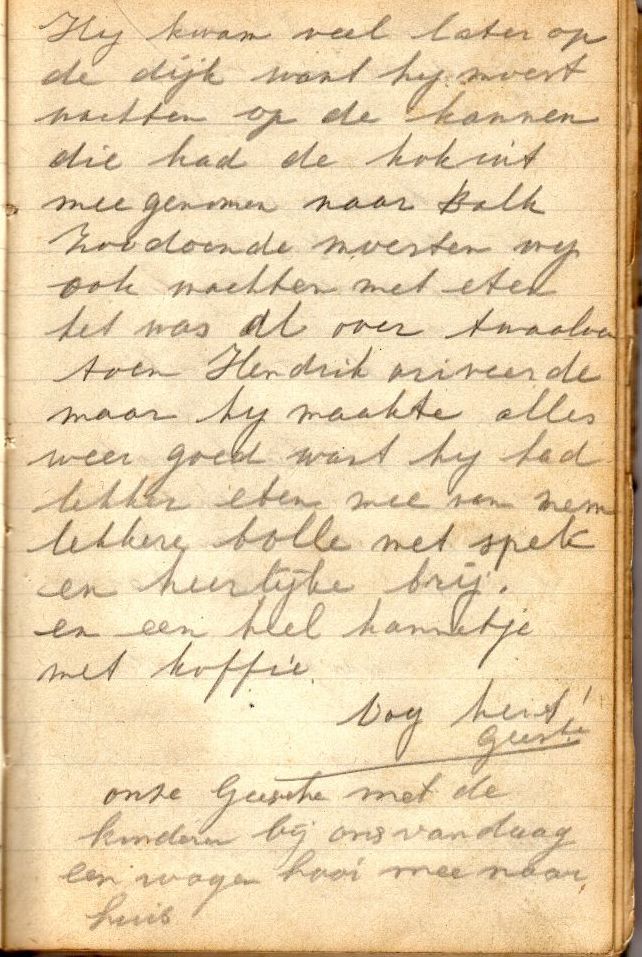 Hij kwam veel later op
de dijk want hij moest
wachten op de kannen
die had de kok uit
mee genomen naar Balk
Zoodoende moesten wij
ook wachten met eten
het was al over twaalven
toen Hendrik ariveerde
maar hij maakte alles
weer goed want hij had
lekker eten mee van mem
lekkere bolle met spek
en heerlijke brij.
en een heel kannetje
met koffie.
Dag
Geeske
onze Geeske met de
kinderen bij ons vandaag
een wagen hooi mee naar
huis